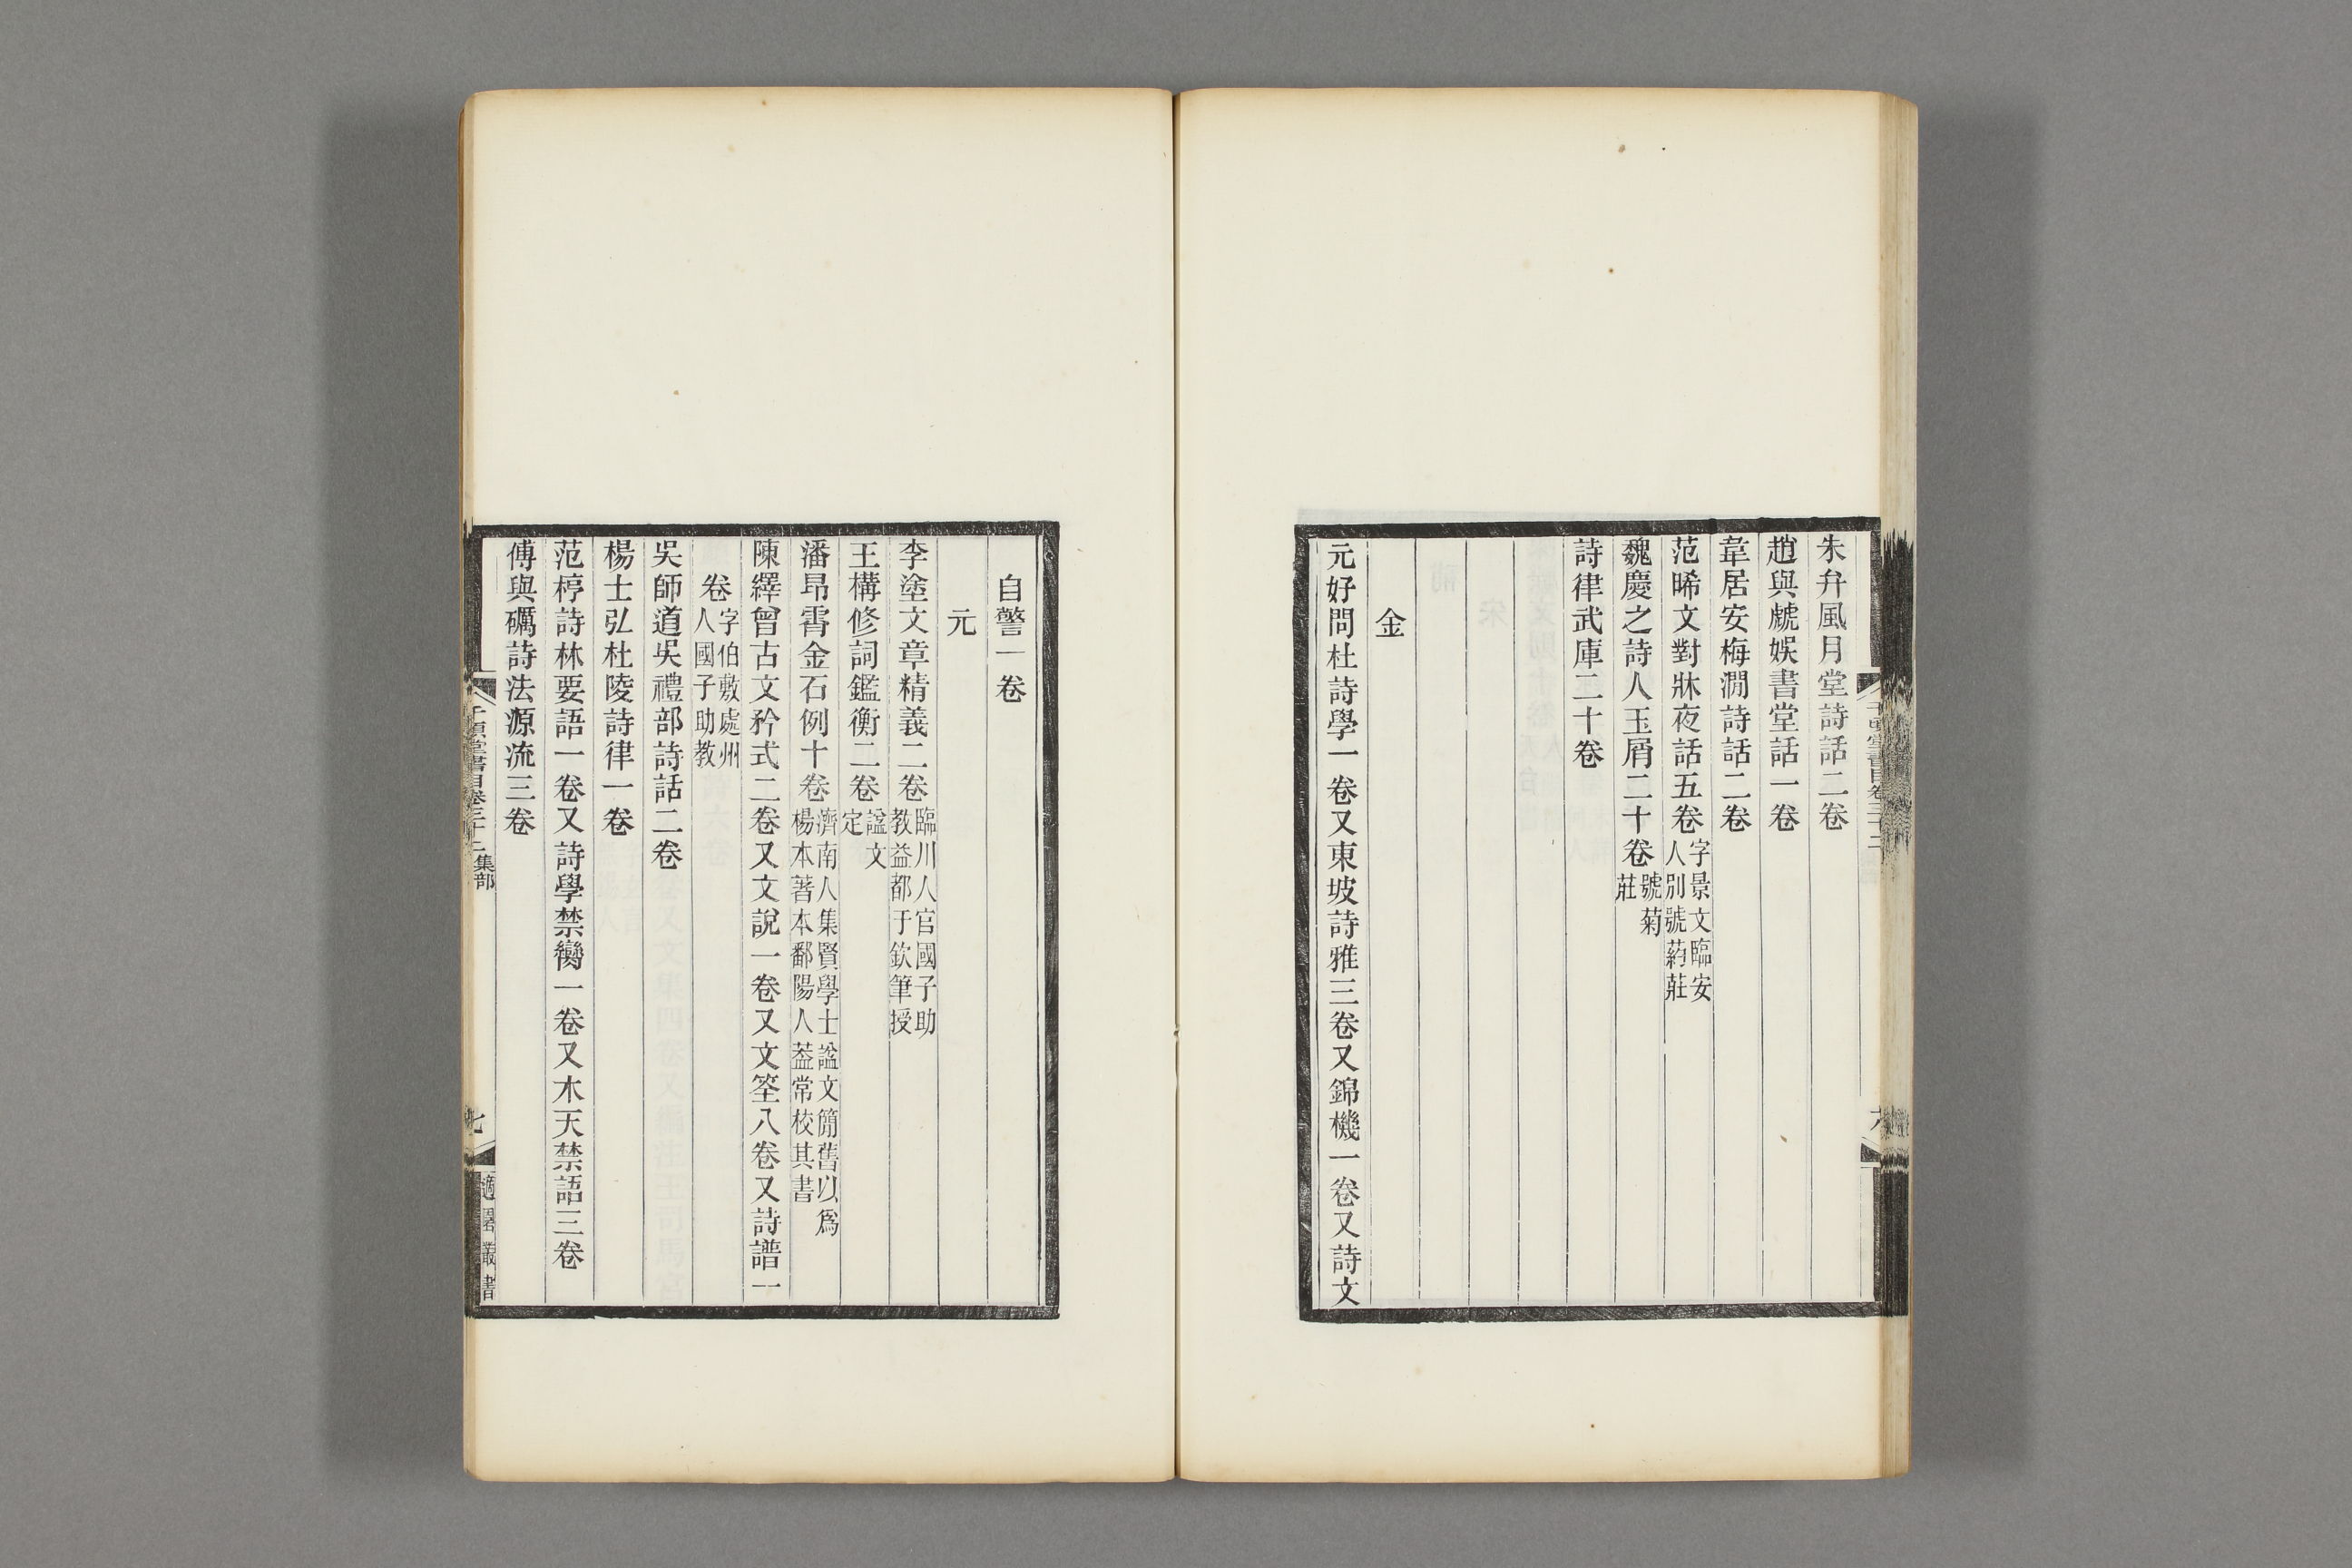 朱弁風月堂詩話二卷
趙與虤娛書堂話一卷
韋居安梅澗詩話二卷
范晞文對牀夜話五卷字景文臨安人別號葯莊
魏慶之詩人玉屑二十卷號菊莊
詩律武庫二十卷
金
元好問杜詩學一卷又東坡詩雅三卷又錦機一卷又詩文
自警一卷
元
李塗文章精義二卷臨川人官國子助教益都于欽筆授
王構修詞鑑衡二卷諡文定
潘昂霄金石例十卷濟南人集賢學士諡文簡舊以為楊本著本鄱陽人葢常校其書
陳繹曾古文矜式二卷又文說一卷又文筌八卷又詩譜一
卷字伯敷處州人國子助教
吳師道吳禮部詩話二卷
楊士弘杜陵詩律一卷
范梈詩林要語一卷又詩學禁臠一卷又木天禁語三卷
傅與礪詩法源流三卷
千頃堂書目卷三十二 集部
七
適園叢書